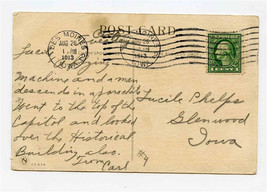 POST CARD
DES MOINES
AUG 26
1 PM
1913
IOWA
Machine and a man
descends in a
Went to the top of the
Capitol and looked
over the Historical
Building also.
from
Carl
Lucile Phelps
Glenwood
Iowa
#4